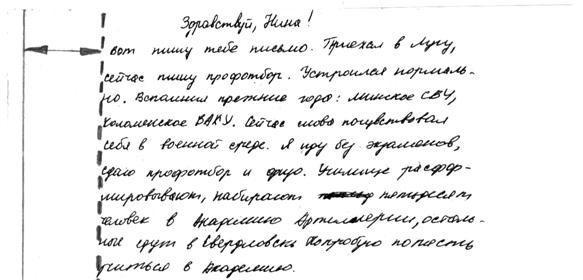 Здравствуй, Нина!
Вот пишу тебе письмо. Приехал в Лугу,
сейчас пишу профотбор. Устроился нормаль-
но. Вспомнил прежние годы: минское СВУ,
Коломенское ВАКУ. Сейчас снова почувствовал
себя в военной среде. Я иду без экзаменов,
сдаю профотбор и физо. Училище расфор-
мировывают, набирают пятьдесят
человек в Академию Артиллерии, осталь-
ные едут в Свердловск. Попробую попасть
учиться в Академию.